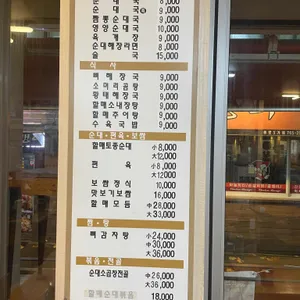 순 대 국 8,000
순 대 국 特 9,000
짬뽕순대국 9,000
영양순대국 10,000
육 개 장 9,000
순대해장라면 8,000
술 국 15,000
식 사
뼈해장국 9,000
소머리곰탕 9,000
황태해장국 9,000
할매소내장탕 9,000
할매추어탕 9,000
수육국밥 9,000
순대·편육·보쌈
할매토종순대 小8,000
大12,000
편 육 小8,000
大12,000
보쌈정식 10,000
맛보기보쌈 16,000
할매모듬 中28,000
大33,000
찜·탕
뼈감자탕 小24,000
中30,000
大36,000
볶음·전골
순대소곱창전골 中26,000
大36,000
할매순대볶음 18,000